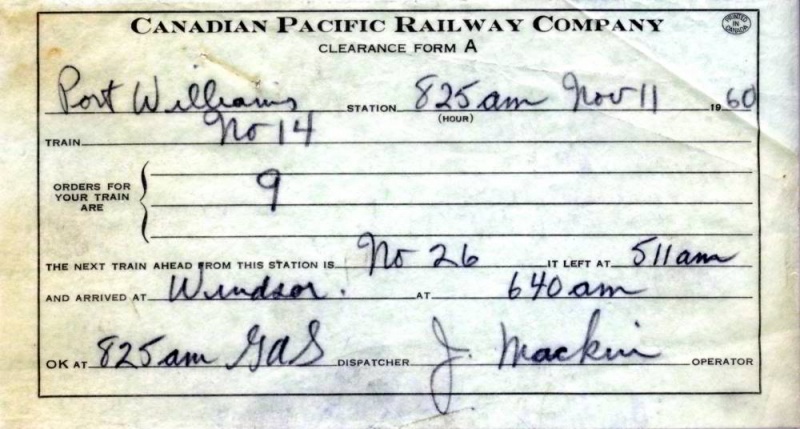 CANADIAN PACIFIC RAILWAY COMPANY
PRINTED IN CANADA
CLEARANCE FORM A
Port Williams STATION 825 am Nov 11 1960
(HOUR)
TRAIN No 14
ORDERS FOR YOUR TRAIN ARE 9
THE NEXT TRAIN AHEAD FROM THIS STATION IS No 26 IT LEFT AT 511 am
AND ARRIVED AT Windsor. AT 640 am
OK AT 825 am GAS DISPATCHER J. Mackin OPERATOR